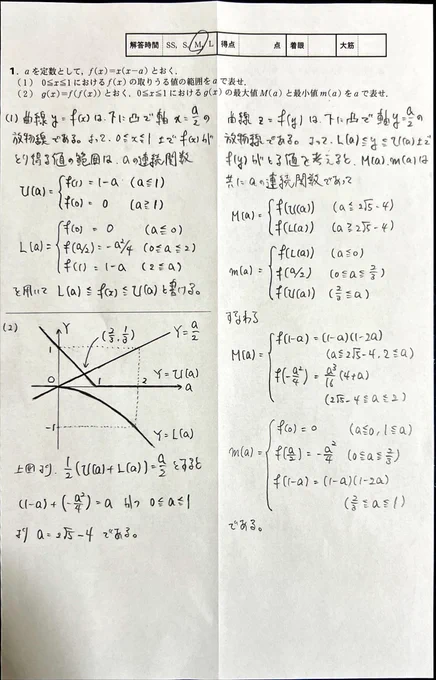 解答時間 SS, S, M, L 得点 点 着眼 大筋
1. aを定数として, f(x)=x(x−a)とおく.
(1) 0≦x≦1におけるf(x)の取りうる値の範囲をaで表せ.
(2) g(x)=f(f(x))とおく. 0≦x≦1におけるg(x)の最大値M(a)と最小値m(a)をaで表せ.
(1) 曲線 y=f(x)は、下に凸で軸 x=a/2 の
放物線である。よって、0≦x≦1 上で f(x)が
とり得る値の範囲は、aの連続関数
U(a)= { f(1)=1-a (a≦1)
f(0)=0 (a≧1)
L(a)= { f(0)=0 (a≦0)
f(a/2)=-a²/4 (0≦a≦2)
f(1)=1-a (2≦a)
を用いて L(a)≦f(x)≦U(a)と書ける。
(2)
Y
(2/3, 1/3)
Y=a/2
1
Y=U(a)
0 1 2 a
-1
Y=L(a)
上図より、1/2(U(a)+L(a))=a/2 とすると
(1-a)+(-a²/4)=a かつ 0≦a≦1
より a=2√5-4 である。
曲線 z=f(y)は、下に凸で軸 y=a/2の
放物線である。よって、L(a)≦y≦U(a)上で
f(y)がとる値を考えると、M(a), m(a)は
共にaの連続関数であって
M(a)= { f(U(a)) (a≦2√5-4)
f(L(a)) (a≧2√5-4)
m(a)= { f(L(a)) (a≦0)
f(a/2) (0≦a≦2/3)
f(U(a)) (2/3≦a)
すなわち
M(a)= { f(1-a)=(1-a)(1-2a)
(a≦2√5-4, 2≦a)
f(-a²/4)=a³/16(4+a)
(2√5-4≦a≦2)
m(a)= { f(0)=0 (a≦0, 1≦a)
f(a/2)=-a²/4 (0≦a≦2/3)
f(1-a)=(1-a)(1-2a)
(2/3≦a≦1)
である。